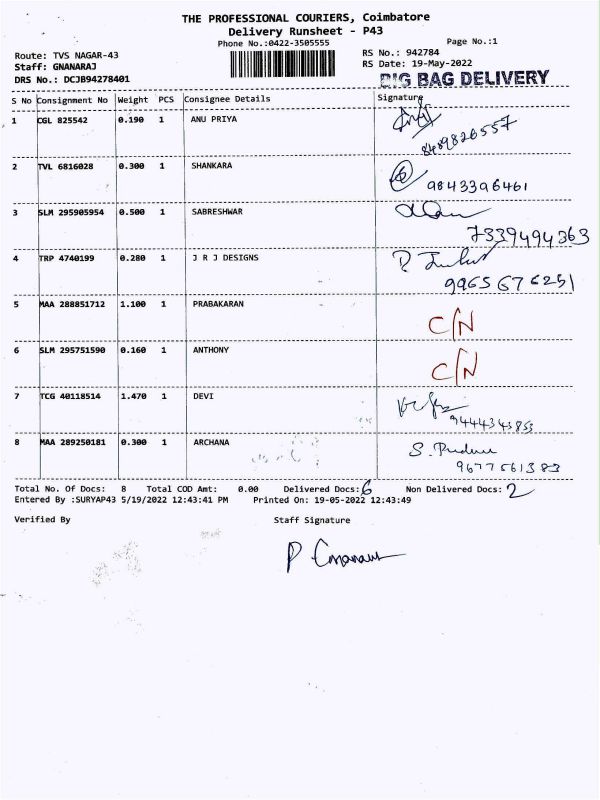 THE PROFESSIONAL COURIERS, Coimbatore
Delivery Runsheet - P43
Phone No.:0422-3505555 Page No.:1
Route: TVS NAGAR-43 RS No.: 942784
Staff: GNANARAJ RS Date: 19-May-2022
DRS No.: DCJB94278401 BIG BAG DELIVERY
S No Consignment No Weight PCS Consignee Details Signature
1 CGL 825542 0.190 1 ANU PRIYA
8489826557
2 TVL 6816028 0.300 1 SHANKARA
9843396461
3 SLM 295905954 0.500 1 SABRESHWAR
7339494363
4 TRP 4740199 0.280 1 J R J DESIGNS
9965676251
5 MAA 288851712 1.100 1 PRABAKARAN C/N
6 SLM 295751590 0.160 1 ANTHONY C/N
7 TCG 40118514 1.470 1 DEVI
9444343853
8 MAA 289250181 0.300 1 ARCHANA
9677561383
Total No. Of Docs: 8 Total COD Amt: 0.00 Delivered Docs: 6 Non Delivered Docs: 2
Entered By :SURYAP43 5/19/2022 12:43:41 PM Printed On: 19-05-2022 12:43:49
Verified By Staff Signature